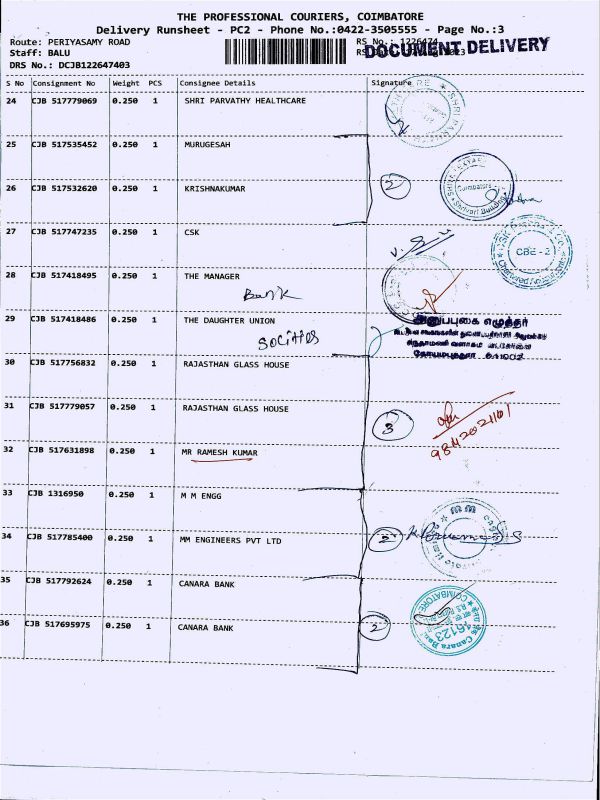 THE PROFESSIONAL COURIERS, COIMBATORE
Delivery Runsheet - PC2 - Phone No.:0422-3505555 - Page No.:3
Route: PERIYASAMY ROAD
RS No.: 1226474
Staff: BALU
DOCUMENT DELIVERY
DRS No.: DCJB122647403
S No Consignment No Weight PCS Consignee Details Signature
24 CJB 517779069 0.250 1 SHRI PARVATHY HEALTHCARE
25 CJB 517535452 0.250 1 MURUGESAH
26 CJB 517532620 0.250 1 KRISHNAKUMAR
2
Coimbatore
Shrivari Building
27 CJB 517747235 0.250 1 CSK
CBE - 2
28 CJB 517418495 0.250 1 THE MANAGER
Bank
29 CJB 517418486 0.250 1 THE DAUGHTER UNION
அனுப்புகை எழுத்தர்
கோயமுத்தூர் 641002
30 CJB 517756832 0.250 1 RAJASTHAN GLASS HOUSE
31 CJB 517779057 0.250 1 RAJASTHAN GLASS HOUSE
3
32 CJB 517631898 0.250 1 MR RAMESH KUMAR
33 CJB 1316950 0.250 1 M M ENGG
34 CJB 517785400 0.250 1 MM ENGINEERS PVT LTD
2
35 CJB 517792624 0.250 1 CANARA BANK
COIMBATORE
36 CJB 517695975 0.250 1 CANARA BANK
2
Canara Bank